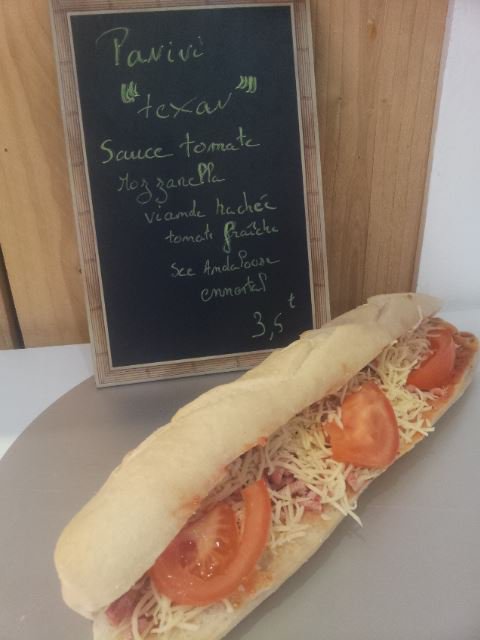 Panini
"texan"
Sauce tomate
Mozzarella
viande hachée
tomate fraîche
sce Andalouse
emmental
3,5 t